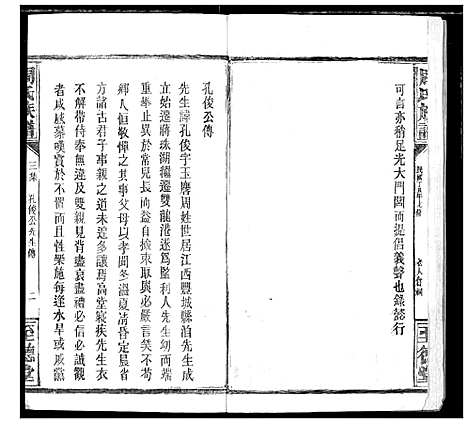 可言亦稍足光大門閭而提倡義聲也錄懿行
孔俊公傳
先生諱孔俊字玉麐周姓世居江西豐城縣泊先生成
立始遷蔣珠湖繼遷雙龍港遂爲監利人先生幼而端
重舉止異於常兒長尚益自撿束取與必嚴言笑不苟
鄉人但敬憚之其事父母以孝聞凊昏定晨省
方諸古君子事親之道未遑多讓焉高堂寢疾先生衣
不解帶侍奉無方及雙親見背必信必誠觀
者咸感慕嘆賞於不而且性樂施每逢水旱或戚黨
周氏族譜
三集
孔俊公先生傳
二
至德堂